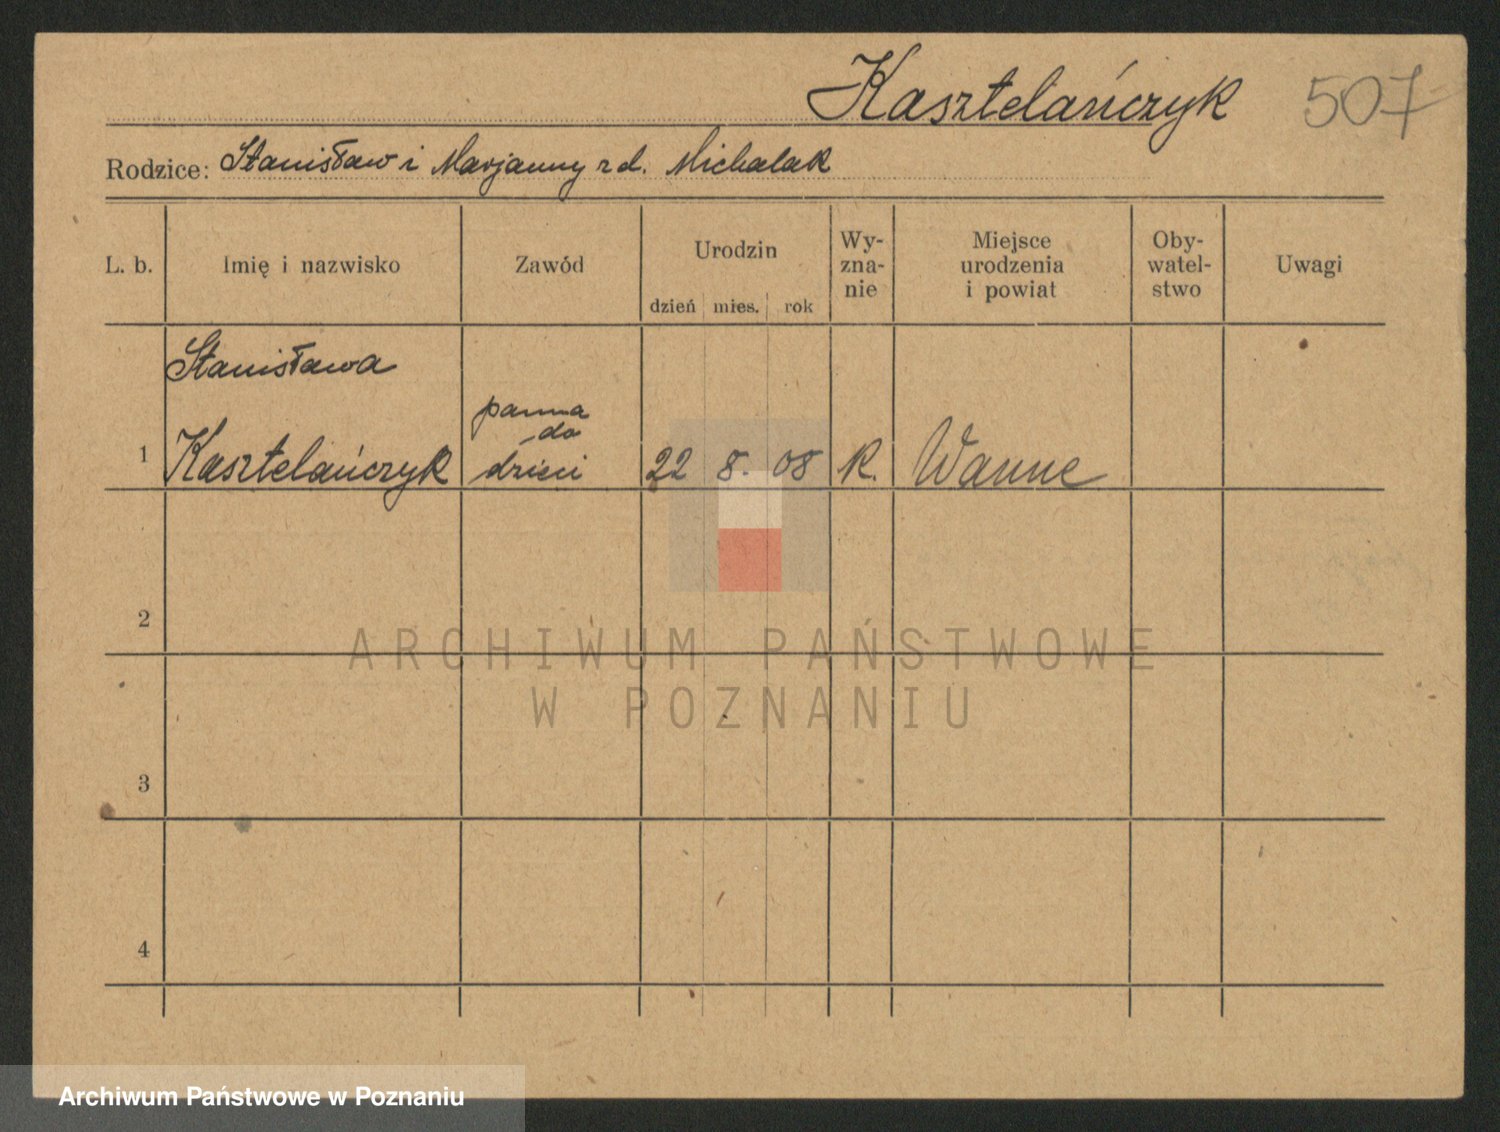 Kasztelańczyk 507
Rodzice: Stanisław i Marjanny zd. Michalak
L. b. Imię i nazwisko Zawód Urodzin dzień mies. rok Wy-zna-nie Miejsce urodzenia i powiat Oby-watel-stwo Uwagi
Stanisława
panna
do
1 Kasztelańczyk dzieci 22 8. 08 k. Wanne
2
ARCHIWUM PAŃSTWOWE
W POZNANIU
3
4
Archiwum Państwowe w Poznaniu